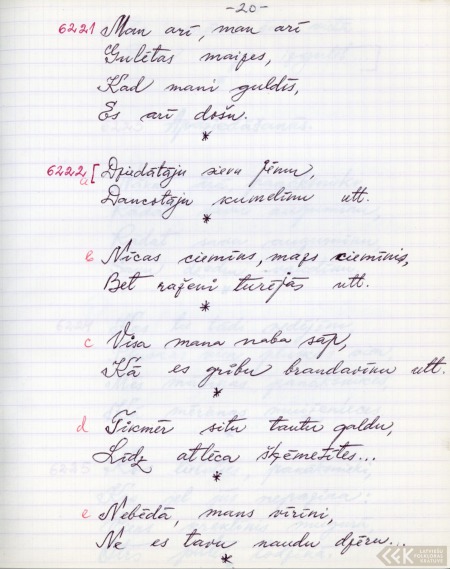 -20-
6221 Man arī, man arī
Gulētas maizes,
Kad mani guldīs,
Es arī došu.
*
6222 a [ Dziedātāju sievu jēmu,
Dancotāju kumeliņu utt.
*
b Nīcas ciemiņs, mazs ciemiņis,
Bet raženi turējās utt.
*
c Visa mana naba sāp,
Kā es gribu brandavīnu utt.
*
d Tikmēr situ tautu galdu,
Līdz atlēca šķēmelītes...
*
e Nebēdā, mans vīriņi,
Ne es tavu naudu dzēru...
*
LATVIEŠU
FOLKLORAS
KRĀTUVE